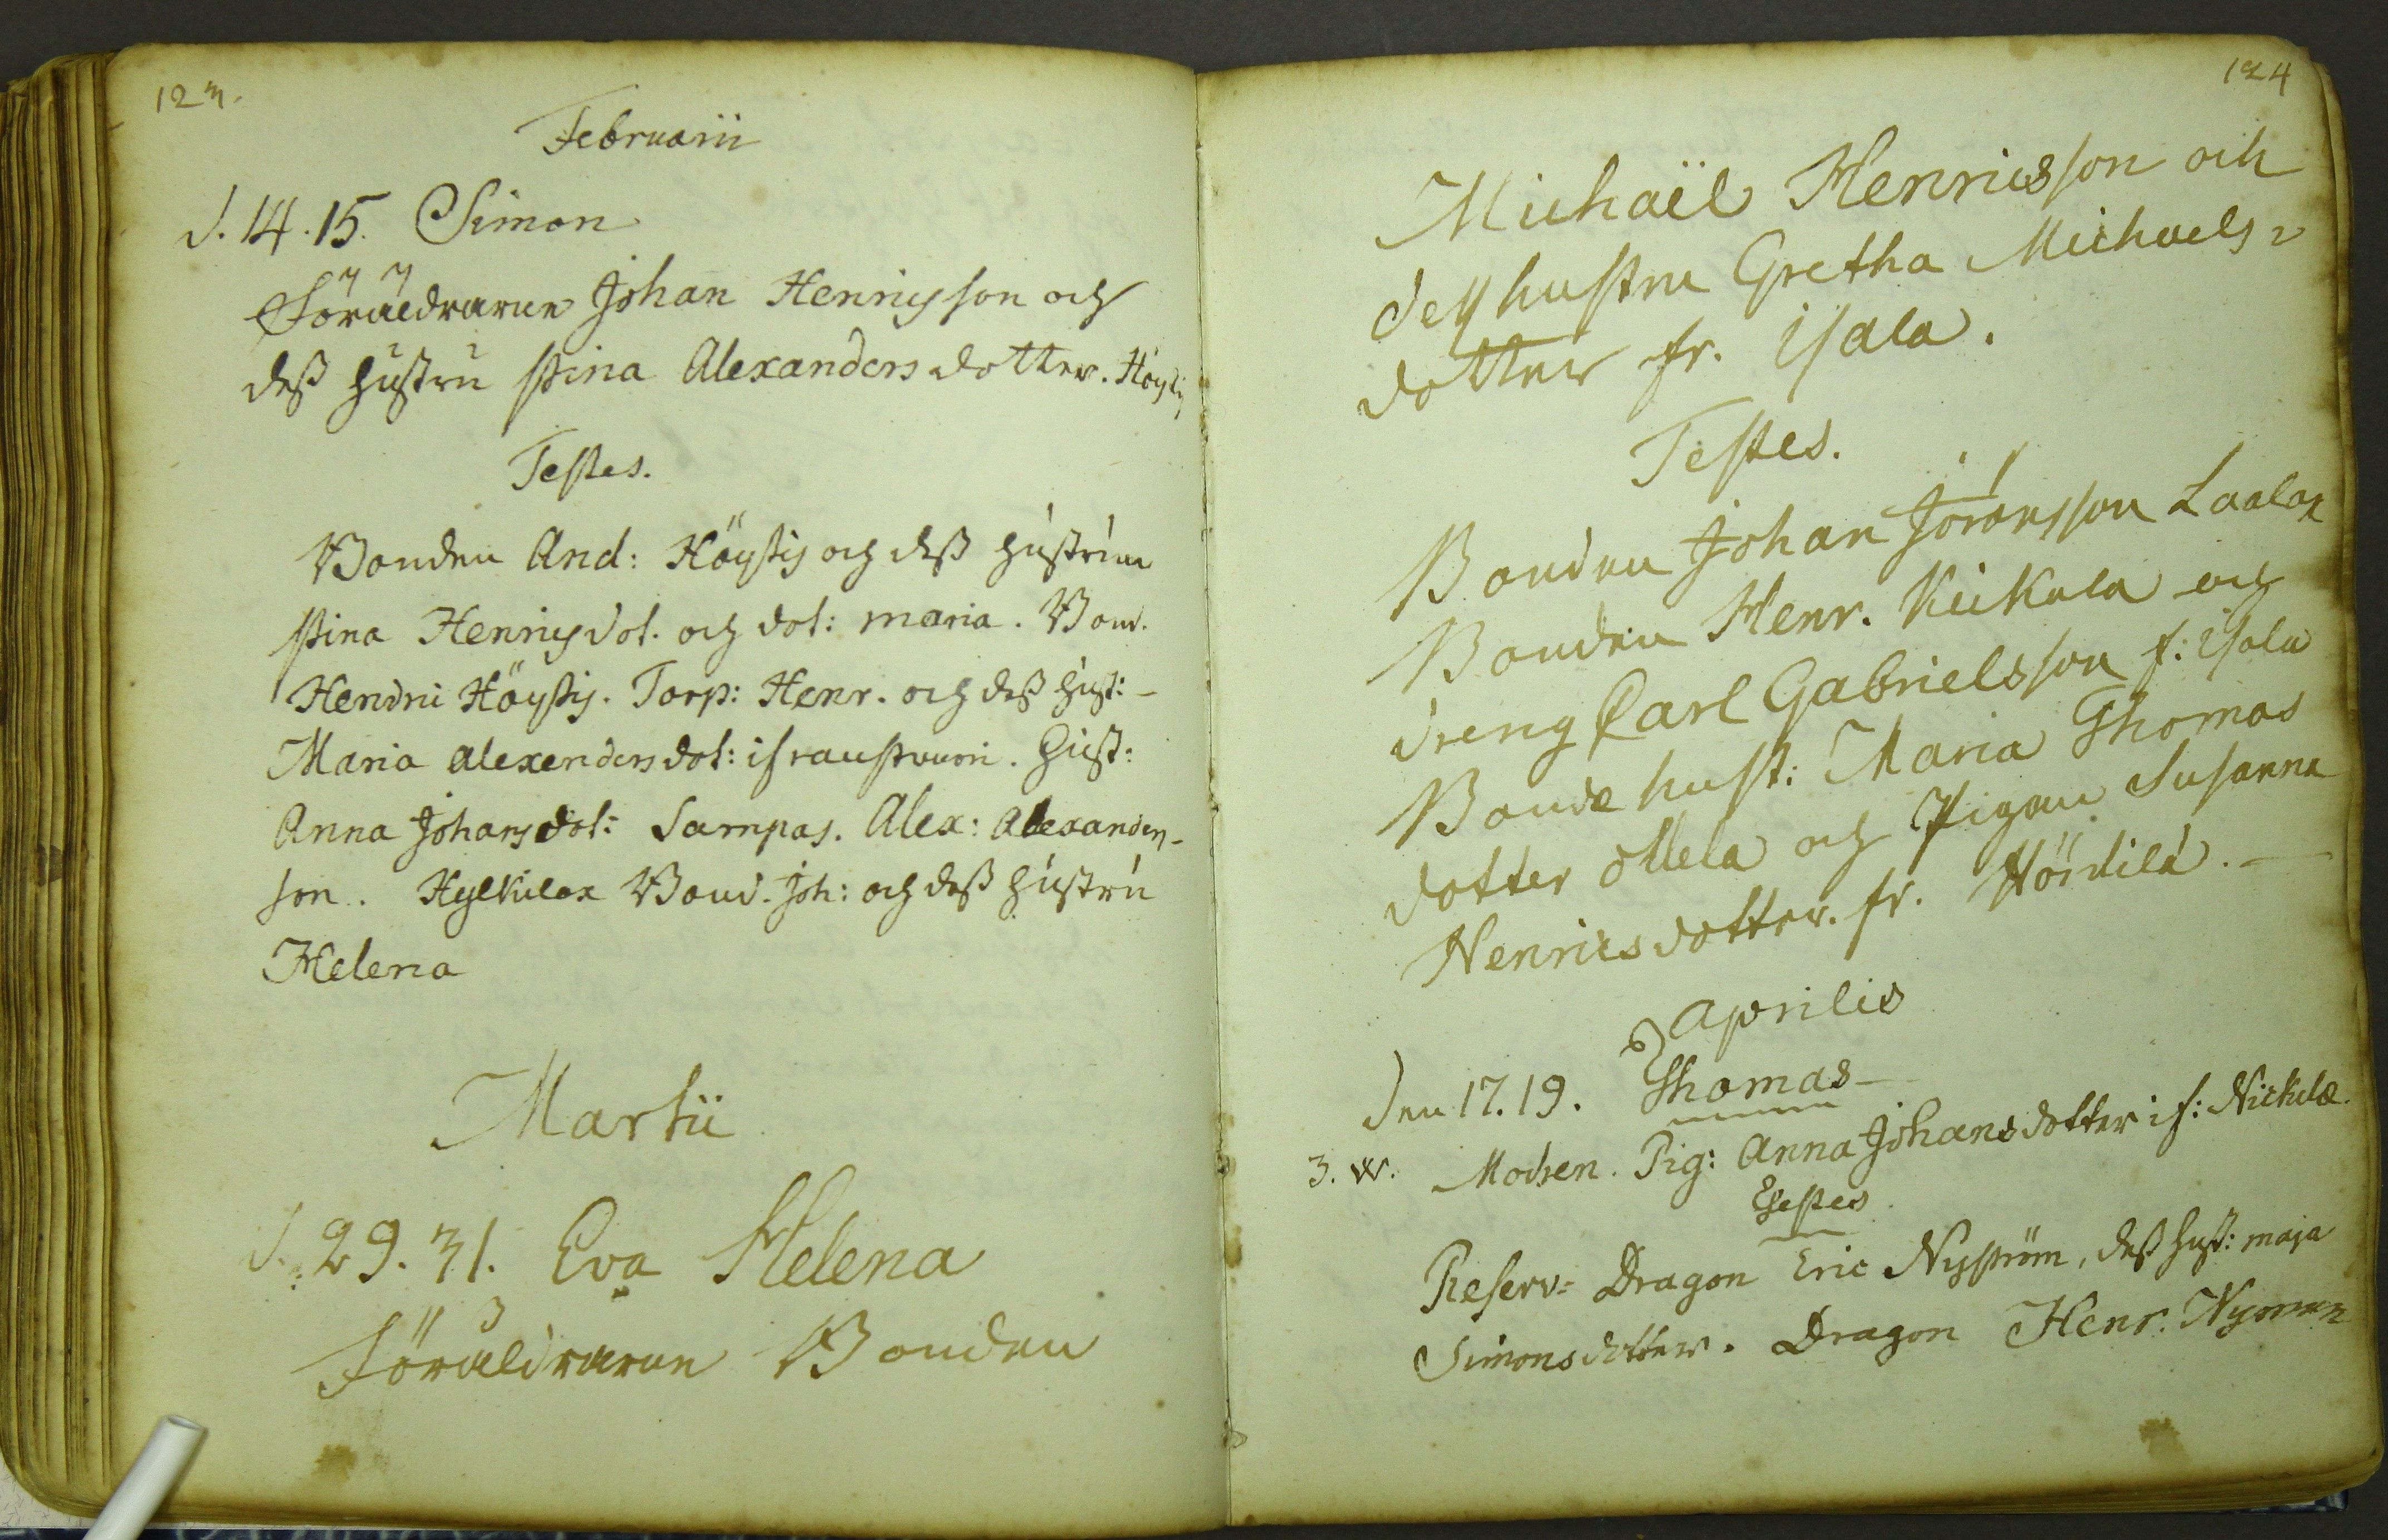 123.
Februarii
d. 14. 15. Simon
Föräldrarne Johan Henricsson och
dess hustru Stina Alexandersdotter. Höysti
Testes.
Bonden And: Höystis och dess hustru
Stina Henricsdot. och dot: Maria. Bond.
Hendric Höystis. Torp: Henr. och dess hust:
Maria Alexendersdot: Hust:
Anna Johansdot: Sampas. Alex: Alexanders-
son. Hylkilax Bond. Joh: och dess hustru
Helena
Martii
d. 29. 31. Eva Helena
Föräldrarne Bonden
124
Michaël Henricsson och
dess hustru Gretha Michaels=
dotter fr. Isala.
Testes.
Bonden Johan Jöransson Laalax
Bonden Henr. Keikala och
dreng Carl Gabrielsson f: Isala
Bonde hust: Maria Thomas
dotter och Pigan Susanna
Henricsdotter. fr.
Aprilis
Den 17. 19. Thomas
3. W. Modren. Pig: Anna Johansdotter if:
Testes
Reserv= Dragon Eric Nyström, dess hust: Maja
Simonsdotter. Dragon Henr. Nyman